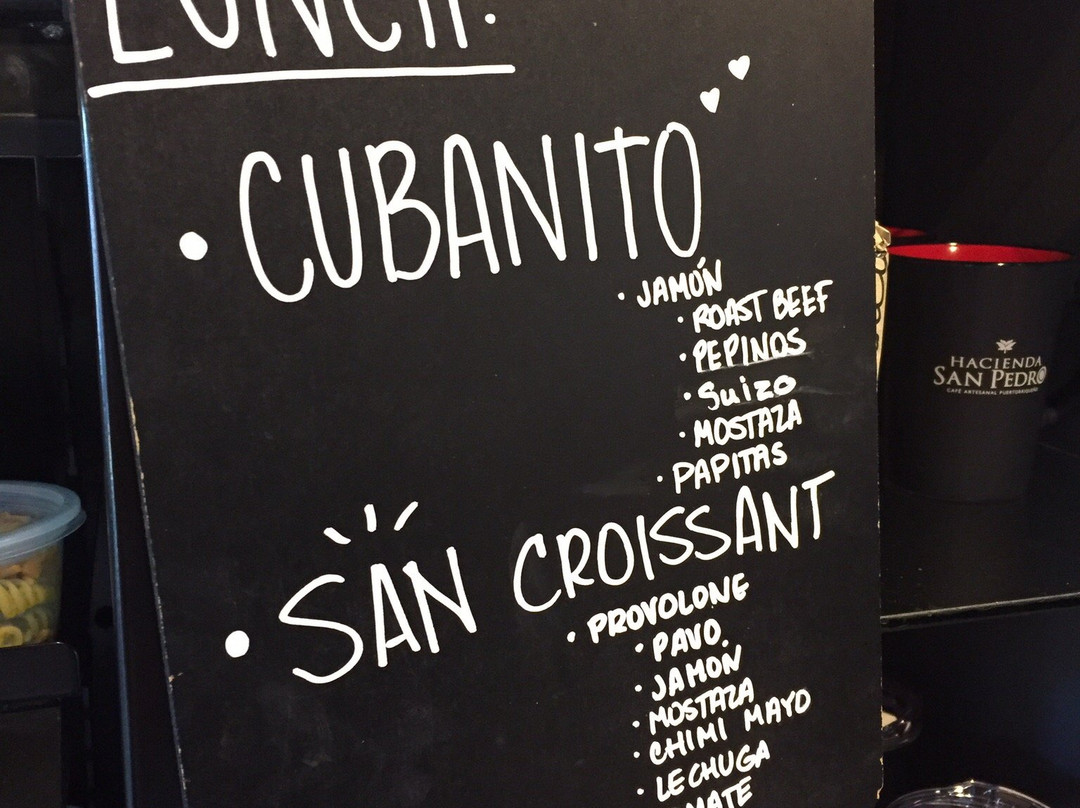 LUNCH:
• CUBANITO
• JAMÓN
• ROAST BEEF
• PEPINOS
• Suizo
• MOSTAZA
• PAPITAS
• SAN CROISSANT
• PROVOLONE
• PAVO
• JAMON
• MOSTAZA
• CHIMI MAYO
• LECHUGA
HACIENDA
SAN PEDRO
CAFÉ ARTESANAL PUERTORRIQUEÑO